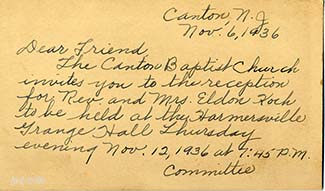 Canton, N.J.
Nov. 6, 1936
Dear Friend,
The Canton Baptist Church
invites you to the reception
for Rev. and Mrs. Eldon Rock
to be held at the Harmersville
Grange Hall Thursday
evening Nov. 12, 1936 at 7:45 P.M.
Committee